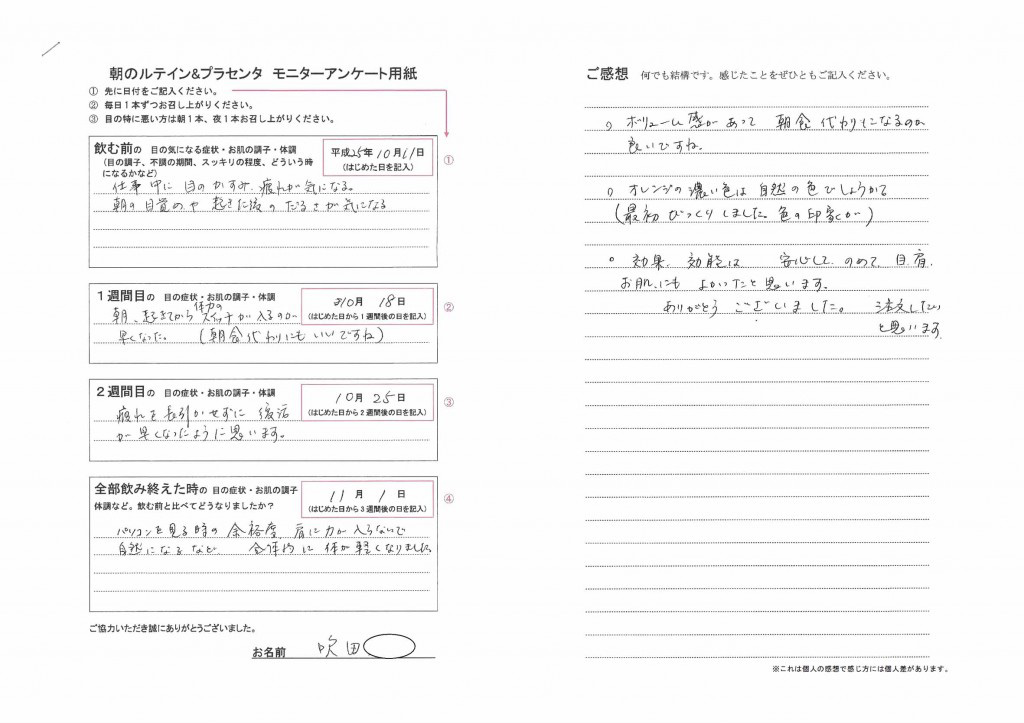 朝のルテイン&プラセンタ モニターアンケート用紙
① 先に日付をご記入ください。
② 毎日1本ずつお召し上がりください。
③ 目の特に悪い方は朝1本、夜1本お召し上がりください。
飲む前の 目の気になる症状・お肌の調子・体調
(目の調子、不調の期間、スッキリの程度、どういう時
になるかなど)
平成25年10月11日
(はじめた日を記入)
①
仕事中に目のかすみ、疲れが気になる。
朝の目覚めや起きた後のだるさが気になる
1週間目の 目の症状・お肌の調子・体調
10月 18日
(はじめた日から1週間後の日を記入)
②
朝、起きてから体力のスイッチが入るのが
早くなった。 (朝食代わりにもいいですね)
2週間目の 目の症状・お肌の調子・体調
10月 25日
(はじめた日から2週間後の日を記入)
③
疲れを長引かせずに 復活
が早くなったように思います。
全部飲み終えた時の 目の症状・お肌の調子
体調など。飲む前と比べてどうなりましたか?
11月 1日
(はじめた日から3週間後の日を記入)
④
パソコンを見る時の余裕度、肩に力が入らないで
自然になるなど 全体的に体が軽くなりました
ご協力いただき誠にありがとうございました。
お名前 吹田
ご感想 何でも結構です。感じたことをぜひともご記入ください。
○ ボリューム感があって 朝食代わりになるのが
良いですね。
○ オレンジの濃い色は自然の色でしょうかる
(最初びっくりしました。色の印象が)
○ 効果、効能は 安心して のめて、目、肩、
お肌にも よかったと思います。
ありがとう ございました。 注文したい
と思います
※これは個人の感想で感じ方には個人差があります。